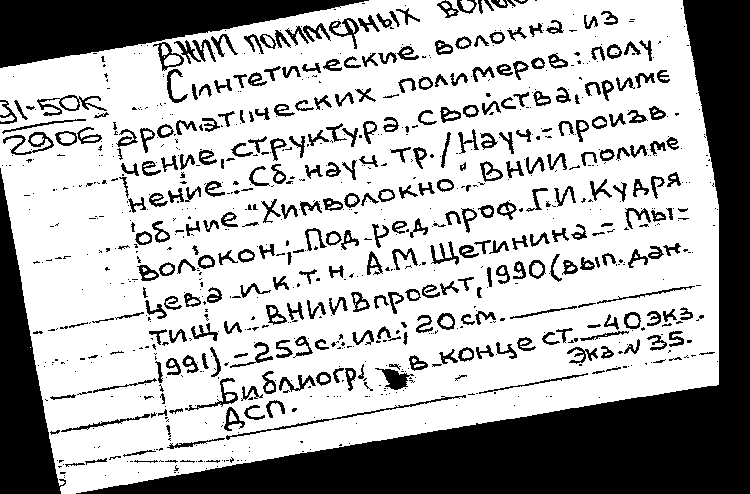 ВНИИ полимерных
Синтетические волокна из
91-50к
2906
ароматических полимеров: полу
чение, структура, свойства, приме
нение: Сб. науч. тр. / Науч.-произв.
об-ние "Химволокно", ВНИИ полиме
волокон; Под ред. проф. Г.И. Кудря
цева и к.т.н. А.М. Щетинина - Мы-
тищи: ВНИИВпроект, 1990 (вып. дан.
1991). - 259с.: ил.; 20см.
Библиогр. в конце ст. - 40 экз.
Экз. N 35.
ДСП.